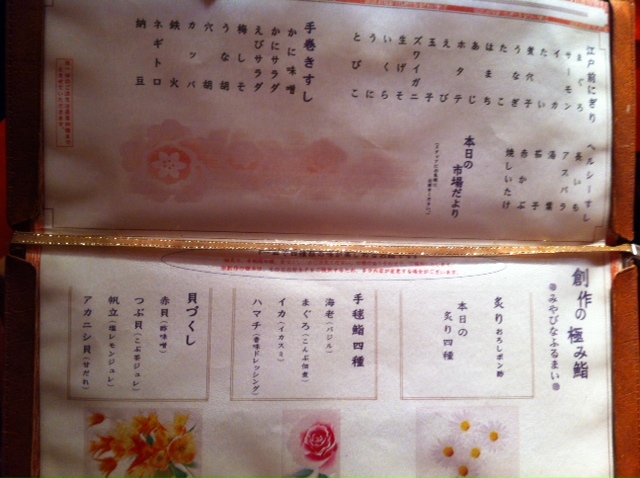 江戸前にぎり
まぐろ
サーモン
イカ
たい
煮穴子
うなぎ
はまち
あじ
ホタテ
えび
玉子
ズワイガニ
生げそ
いくら
うに
とびこ
ヘルシーすし
長いも
アスパラ
湯葉
茄子
赤かぶ
焼しいたけ
本日の
市場だより
手巻きすし
かに味噌
かにサラダ
えびサラダ
梅しそ
うな胡
穴胡
カッパ
鉄火
ネギトロ
納豆
創作の極み鮨
みやびなふるまい
炙り おろしポン酢
本日の
炙り四種
手毬鮨四種
海老(バジル)
まぐろ(こんぶ佃煮)
イカ(イカスミ)
ハマチ(香味ドレッシング)
貝づくし
赤貝(酢味噌)
つぶ貝(こぶ茶ジュレ)
帆立(塩レモンジュレ)
アカニシ貝(甘だれ)